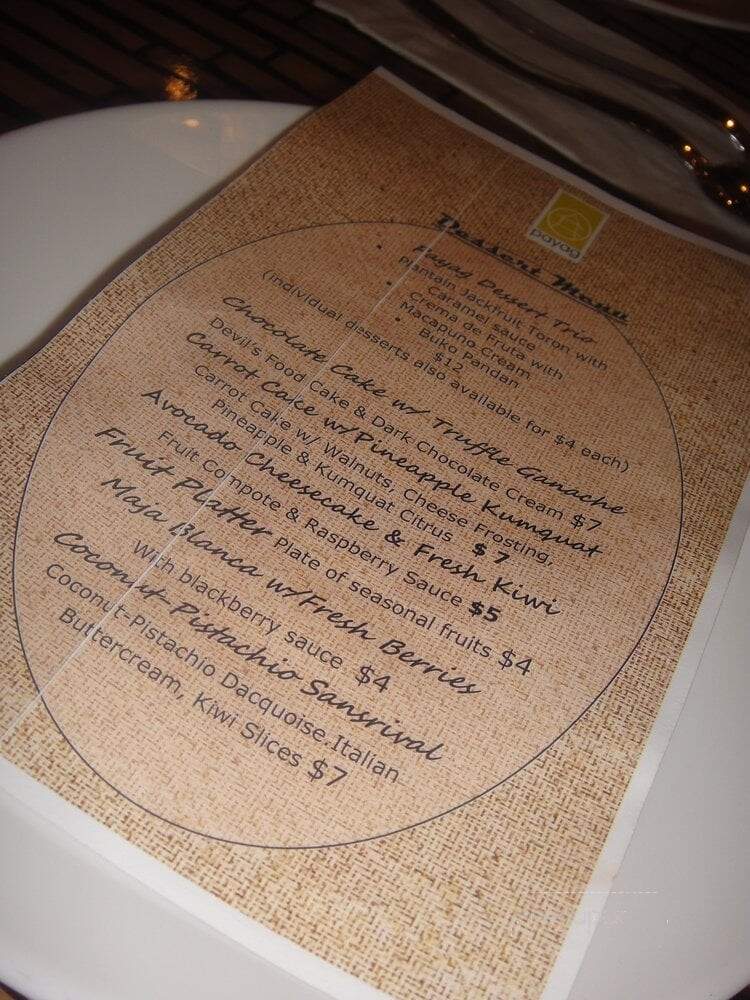 payag
Dessert Menu
Payag Dessert Trio
• Plantain Jackfruit Toron with
Caramel sauce
• Crema de Fruta with
Macapuno Cream
• Buko Pandan
$12
(individual desserts also available for $4 each)
Chocolate Cake w/ Truffle Ganache
Devil's Food Cake & Dark Chocolate Cream $7
Carrot Cake w/Pineapple Kumquat
Carrot Cake w/ Walnuts, Cheese Frosting,
Pineapple & Kumquat Citrus $7
Avocado Cheesecake & Fresh Kiwi
Fruit Compote & Raspberry Sauce $5
Fruit Platter Plate of seasonal fruits $4
Maja Blanca w/Fresh Berries
With blackberry sauce $4
Coconut-Pistachio Sansrival
Coconut-Pistachio Dacquoise.Italian
Buttercream, Kiwi Slices $7